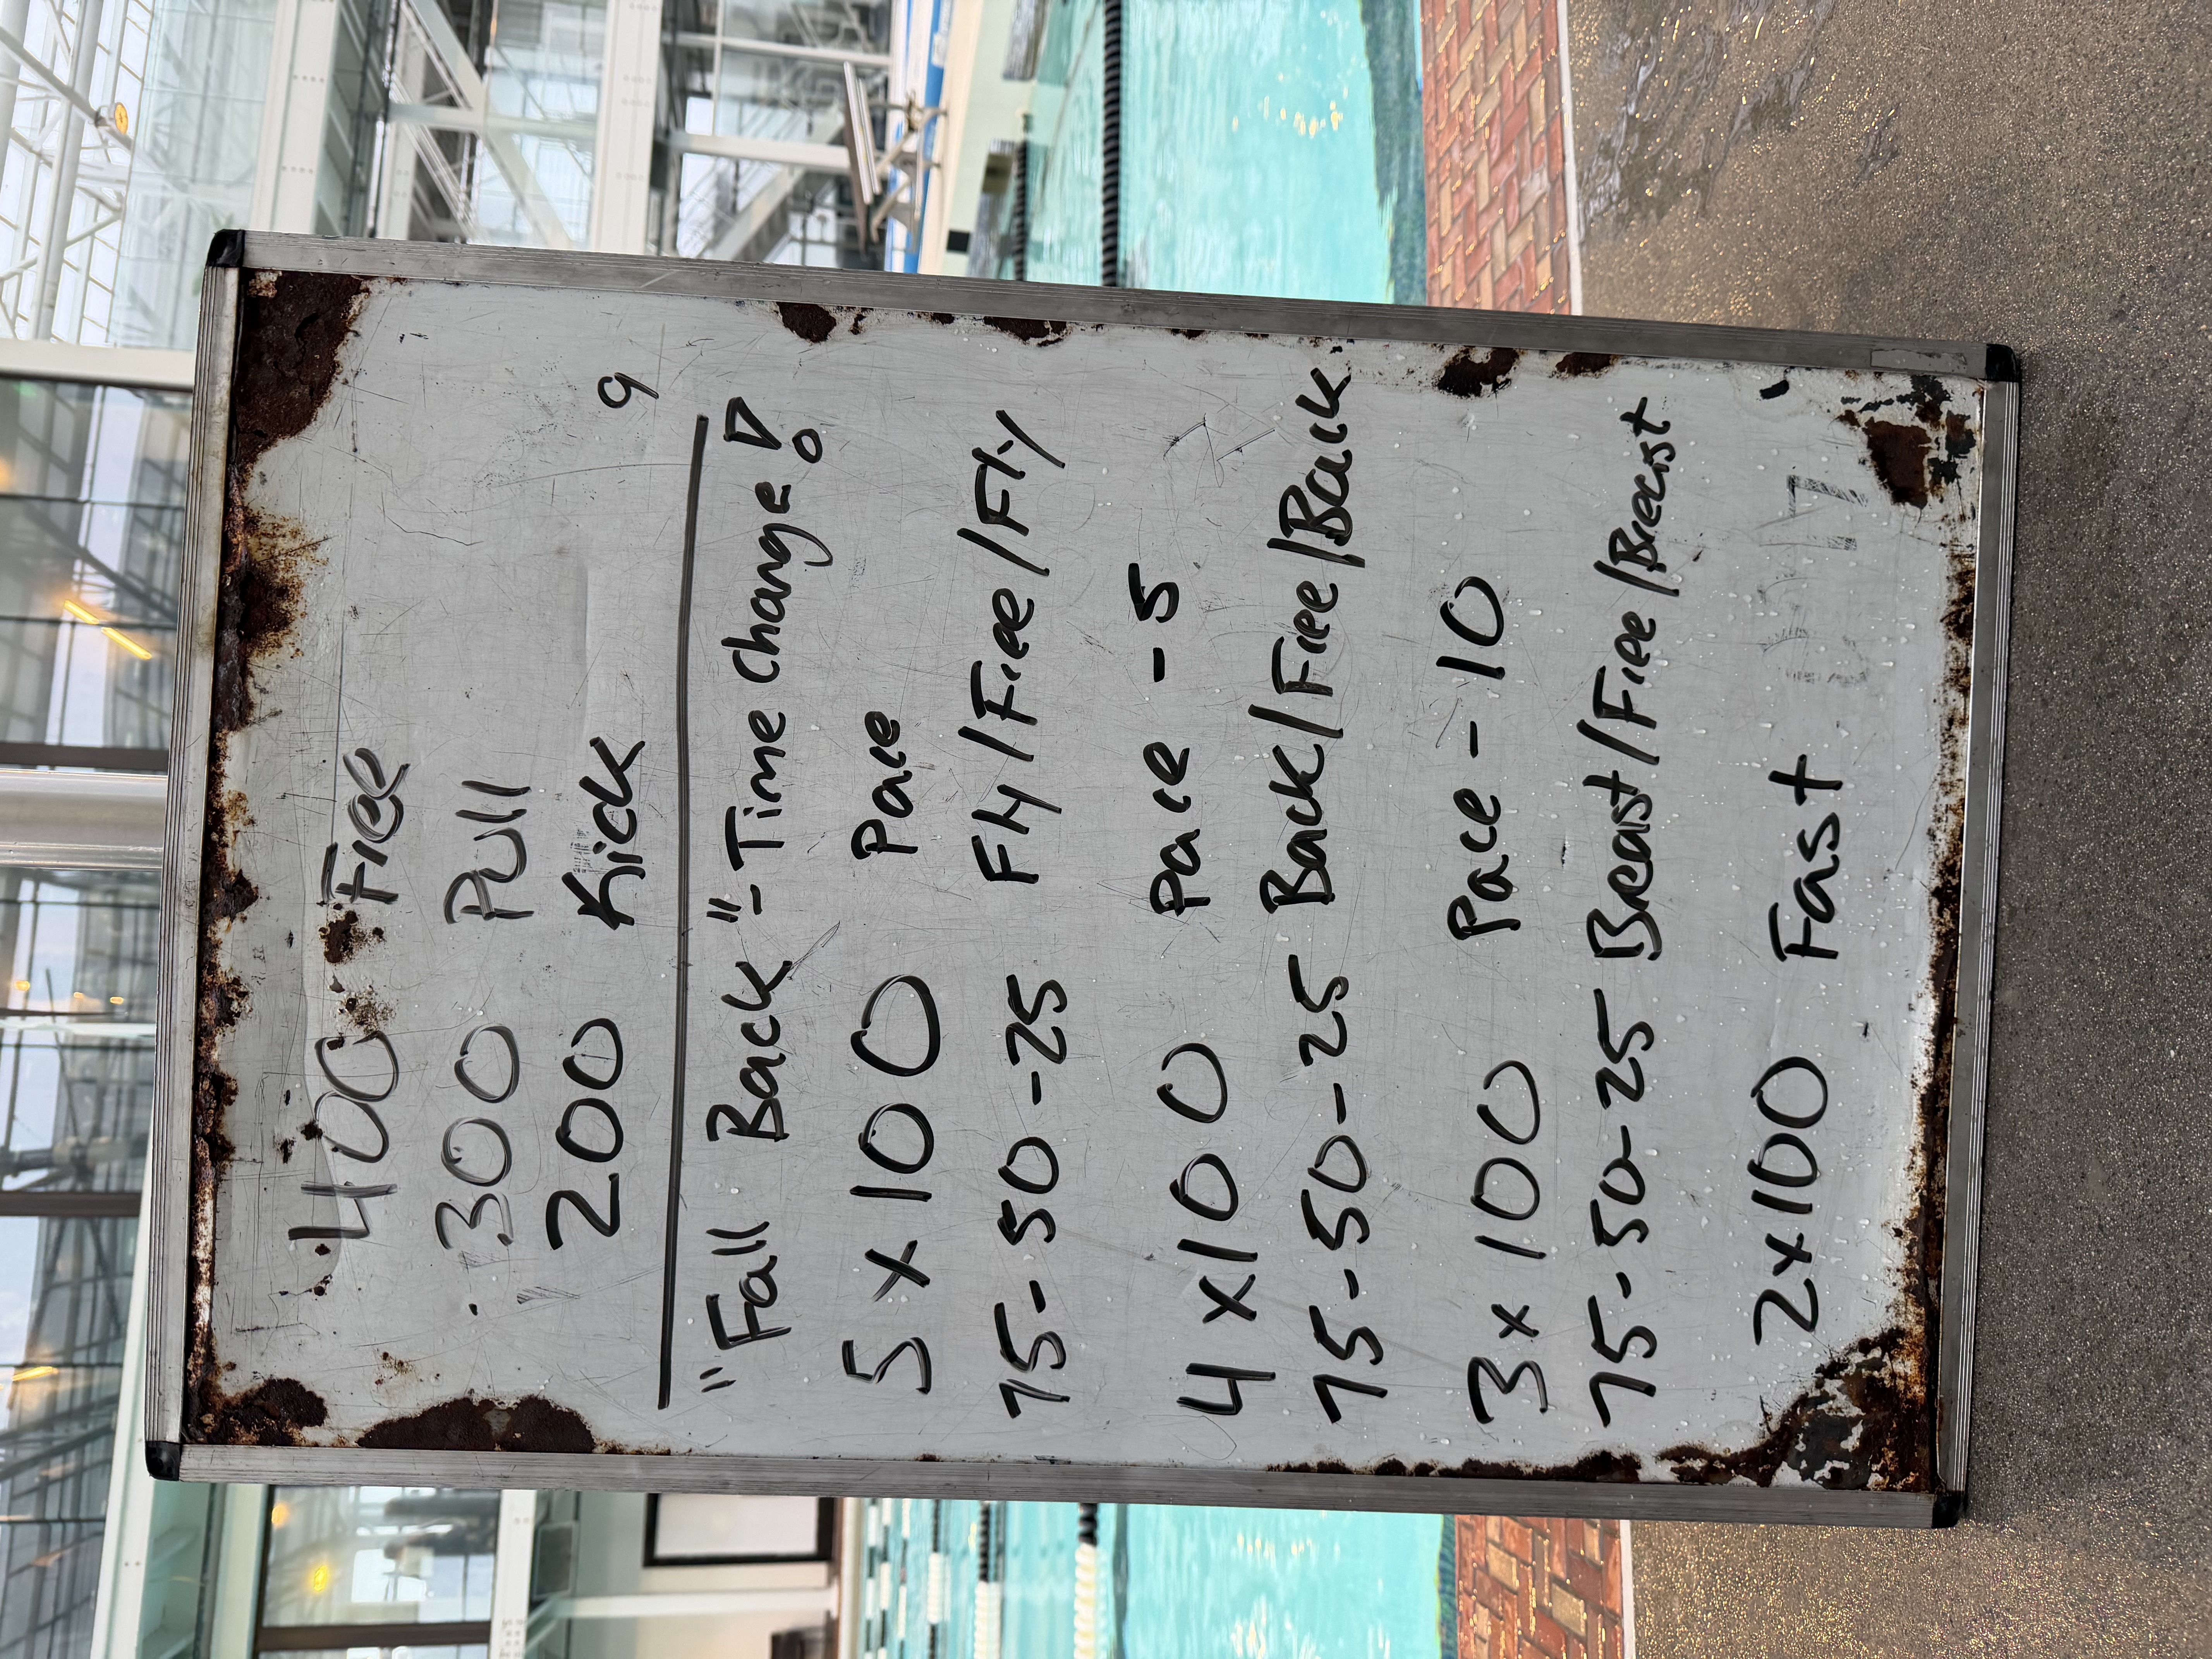 400 Free
300 Pull
200 Kick
9
"Fall Back" - Time Change!
5 x 100 Pace
75-50-25 Fly/Free/Fly
4 x 100 Pace -5
75-50-25 Back/Free/Back
3 x 100 Pace -10
75-50-25 Breast/Free/Breast
2x100 Fast